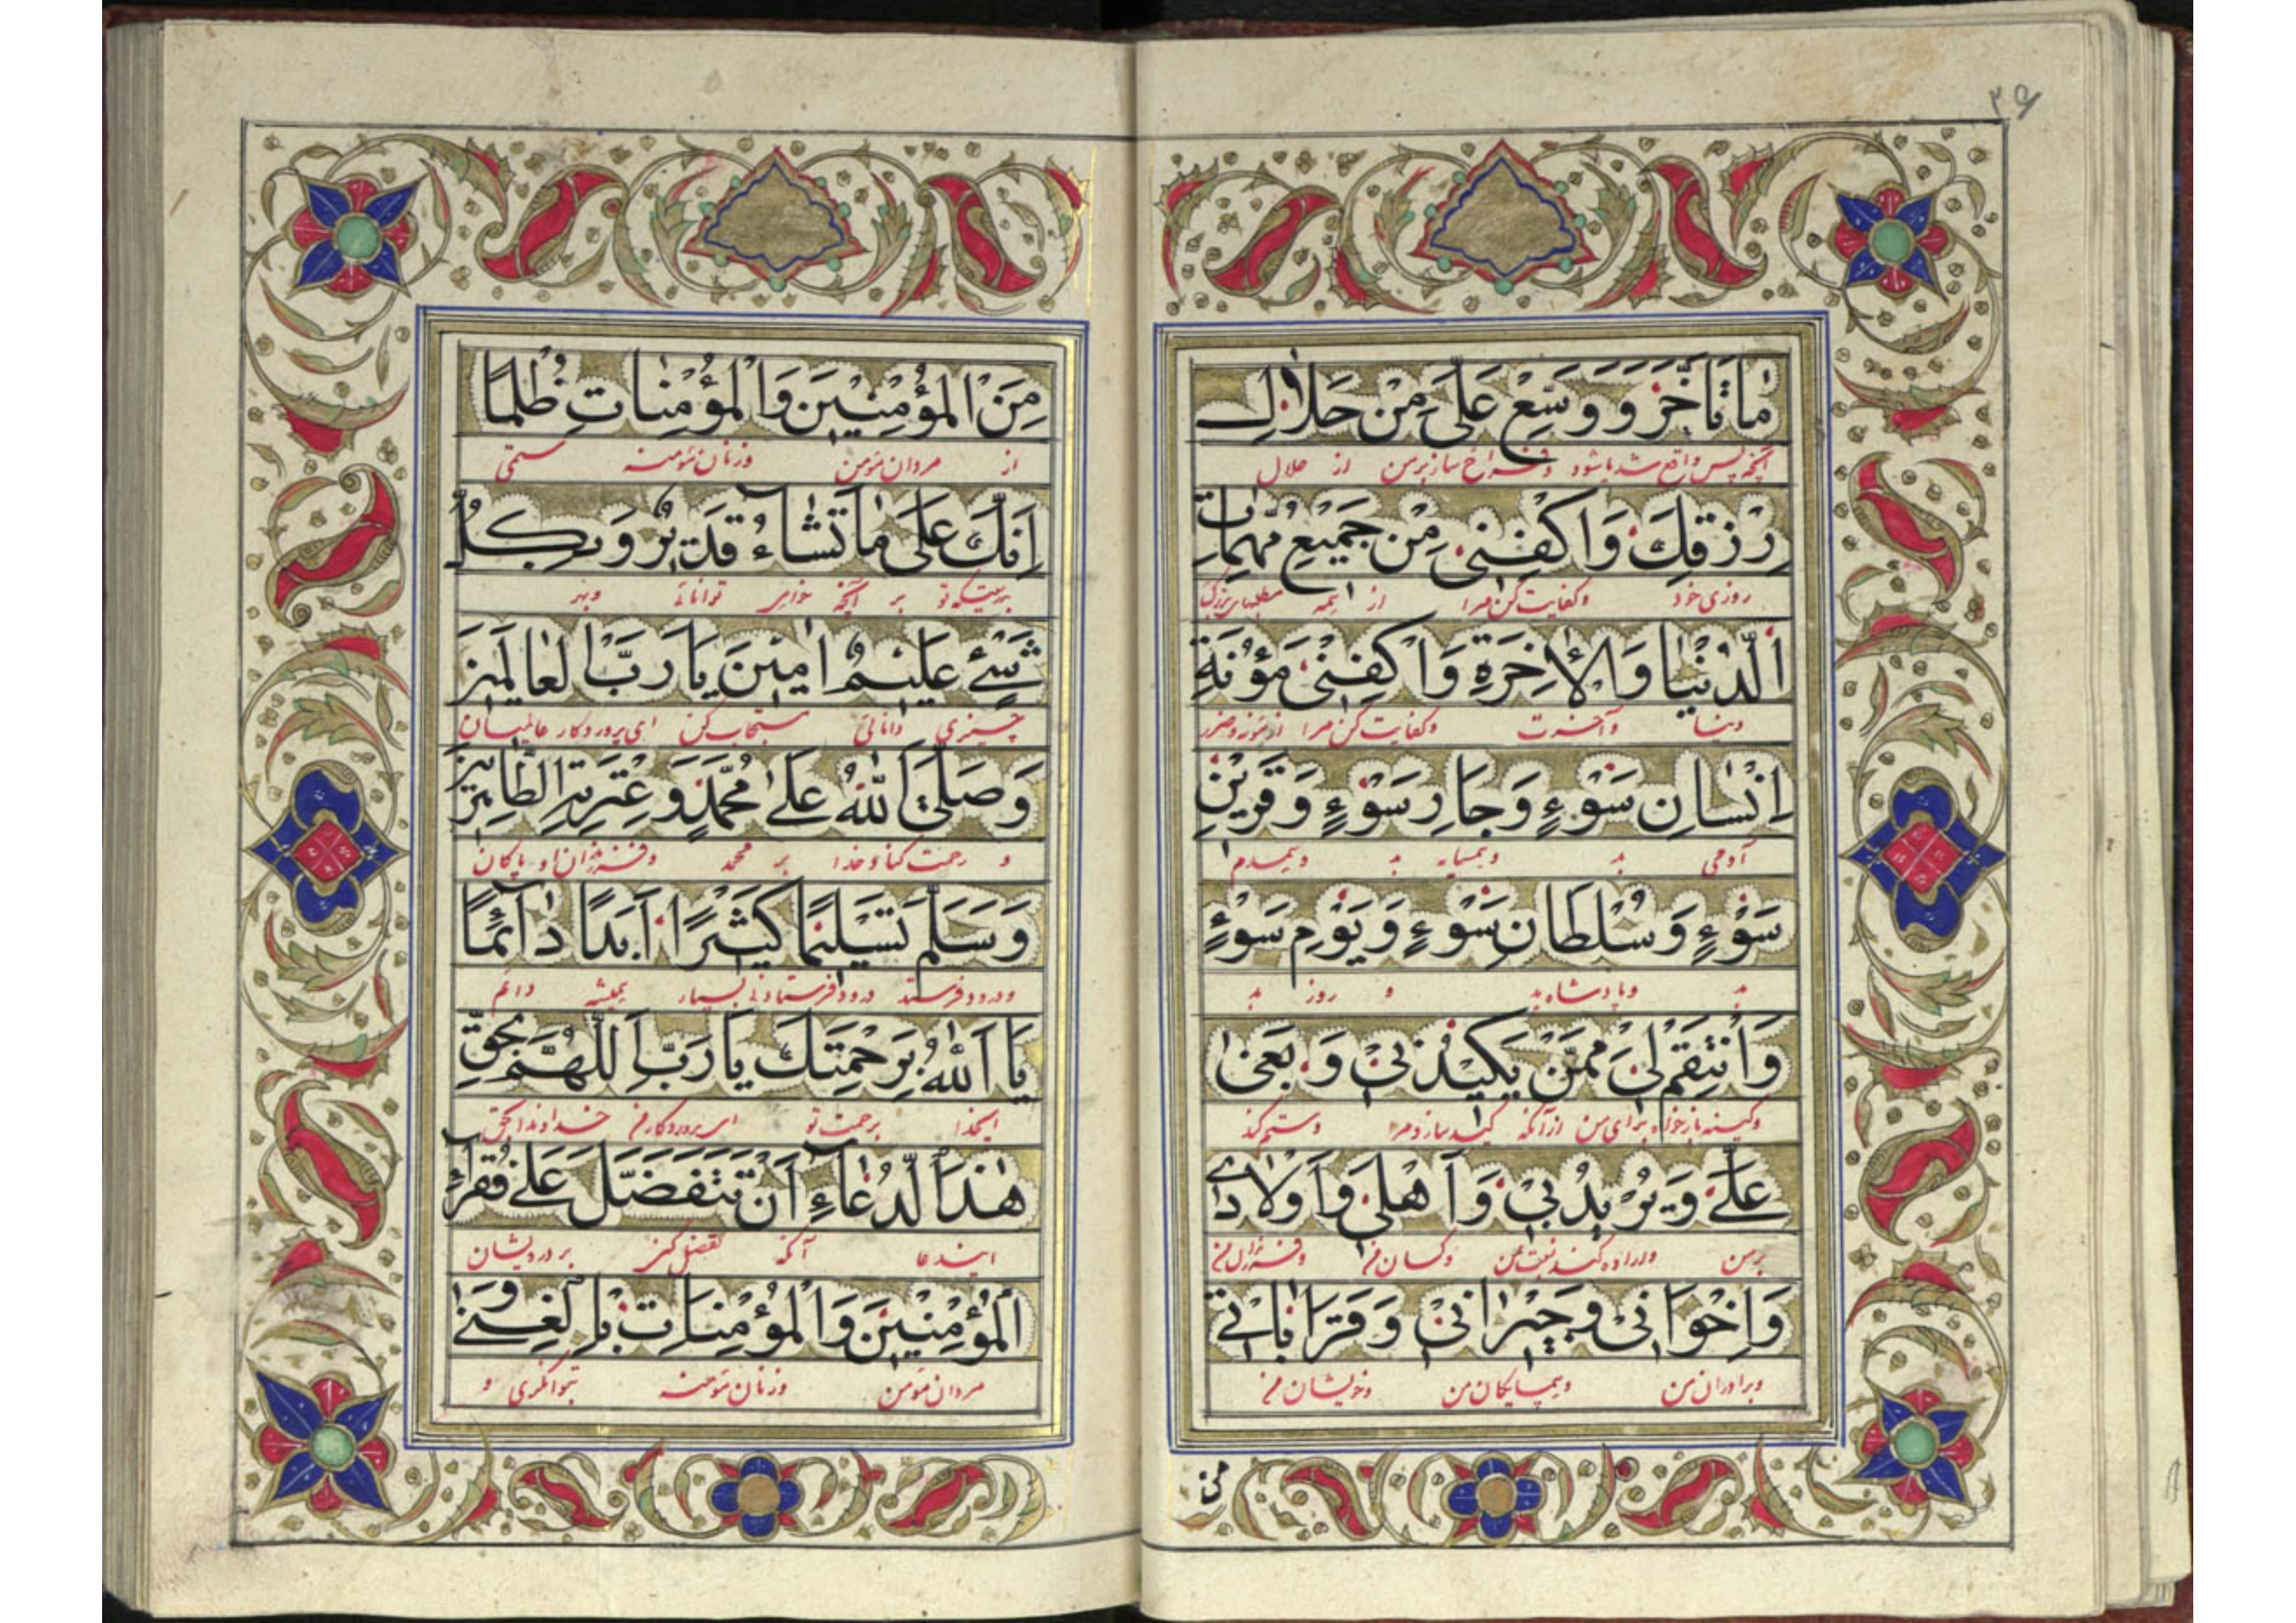 ۲۹
مٰا تَاَخَّرَ وَ وَسِّعْ عَلَیَّ مِنْ حَلٰالِ
آنچه پس واقع شده باشود و فراخ ساز بر من از حلال
رِزْقِكَ وَ اكْفِنِیْ مِنْ جَمِیْعِ مُهِمّٰاتِ
روزی خود و کفایت کن مرا از همه
الدُّنْیٰا وَ الْاٰخِرَةِ وَ اكْفِنِیْ مَؤُنَةِ
دنیا و آخرت و کفایت کن مرا از مؤنه و ضرر
اِنْسٰانِ سَوْءٍ وَ جٰارِ سَوْءٍ وَ قَرِیْنِ
آدمی بد و همسایه بد و همدم
سَوْءٍ وَ سُلْطٰانِ سَوْءٍ وَ یَوْمِ سَوْءٍ
بد و پادشاه بد و روز بد
وَ انْتَقِمْ لِیْ مِمَّنْ یَكِیْدُنِیْ وَ بَغیٰ
و کینه باز خواه برای من از آنکه کید سازد مرا و ستم کند
عَلَیَّ وَ یُرِیْدُ بِیْ وَ اَهْلِیْ وَ اَوْلٰادِیْ
بر من و اراده کند نسبت بمن و کسان من و فرزندان من
وَ اِخْوَانِیْ وَ جِیْرٰانِیْ وَ قَرٰابٰاتِیْ
و برادران من و همسایگان من و خویشان من
من
مِنَ الْمُؤْمِنِیْنَ وَ الْمُؤْمِنٰاتِ ظُلْمًا
از مردان مؤمن و زنان مؤمنه ستمی
اِنَّكَ عَلیٰ مٰا تَشٰاءُ قَدِیْرٌ وَ بِكُلِّ
بدرستیکه تو بر آنچه خواهی توانائی و بهر
شَیْءٍ عَلِیْمٌ اٰمِیْنَ یٰا رَبَّ الْعٰالَمِیْنَ
چیزی دانائی مستجاب کن ای پروردگار عالمیان
وَ صَلَّی اللّٰهُ عَلیٰ مُحَمَّدٍ وَ عِتْرَتِهِ الطّٰاهِرِیْنَ
و رحمت کناد خدا بر محمد و فرزندان او پاکان
وَ سَلَّمَ تَسْلِیْمًا كَثِیْرًا اَبَدًا دٰآئِمًا
و درود فرستد درود فرستادنی بسیار همیشه دائم
یٰا اَللّٰهُ بِرَحْمَتِكَ یٰا رَبِّ اَللّٰهُمَّ بِحَقِّ
ایخدا برحمت تو ای پروردگار من خداوندا بحق
هٰذَا الدُّعٰاءِ اَنْ تَتَفَضَّلَ عَلیٰ فُقَرٰآءِ
ایندعا آنکه تفضل کنی بر درویشان
الْمُؤْمِنِیْنَ وَ الْمُؤْمِنٰاتِ بِالْغِنیٰ وَ
مردان مؤمن و زنان مؤمنه بتوانگری و